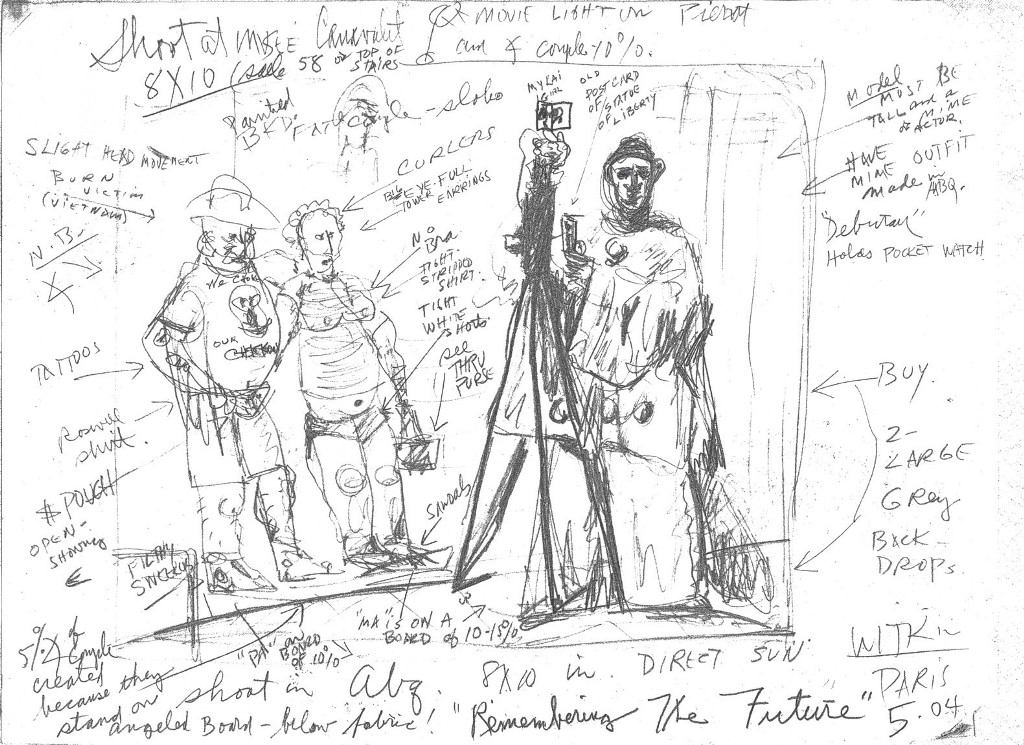 Shoot at Musée Carnavalet
8X10 (
58
TOP OF
STAIRS
MOVIE LIGHT ON Pierrot
and couple 10%.
Painted
BKD.
FAT Couple - slobs
SLIGHT HEAD MOVEMENT
BURN
VICTIM
(VIETNAM)
N.B.
CURLERS
EYE-FULL
TOWER EARRINGS
No
Bra
TIGHT
STRIPPED
SHIRT.
TIGHT
WHITE
SHORTS
see
THRU
PURSE
GIRL
OLD
POSTCARD
OF/STATUE
OF LIBERTY
Model
MUST BE
TALL and a
MIME
or ACTOR.
HAVE
MIME OUTFIT
made in
ABQ.
Holds POCKET WATCH
OUR
TATTOOS
Roswell
shirt.
POUCH
OPEN-
SHOWING
FILTHY
SNEAKERS
SANDALS
BUY.
2-
LARGE
Grey
BACK-
DROPS.
"PA" on
BOARD
OF 10%
"MA" IS ON A
BOARD of 10-15%
UP
5% of
Couple
created
because they
stand on
angeled Board - below fabric!
shoot in Abq. 8X10 in DIRECT SUN.
"Remembering The Future"
WITKIN
PARIS
5.04